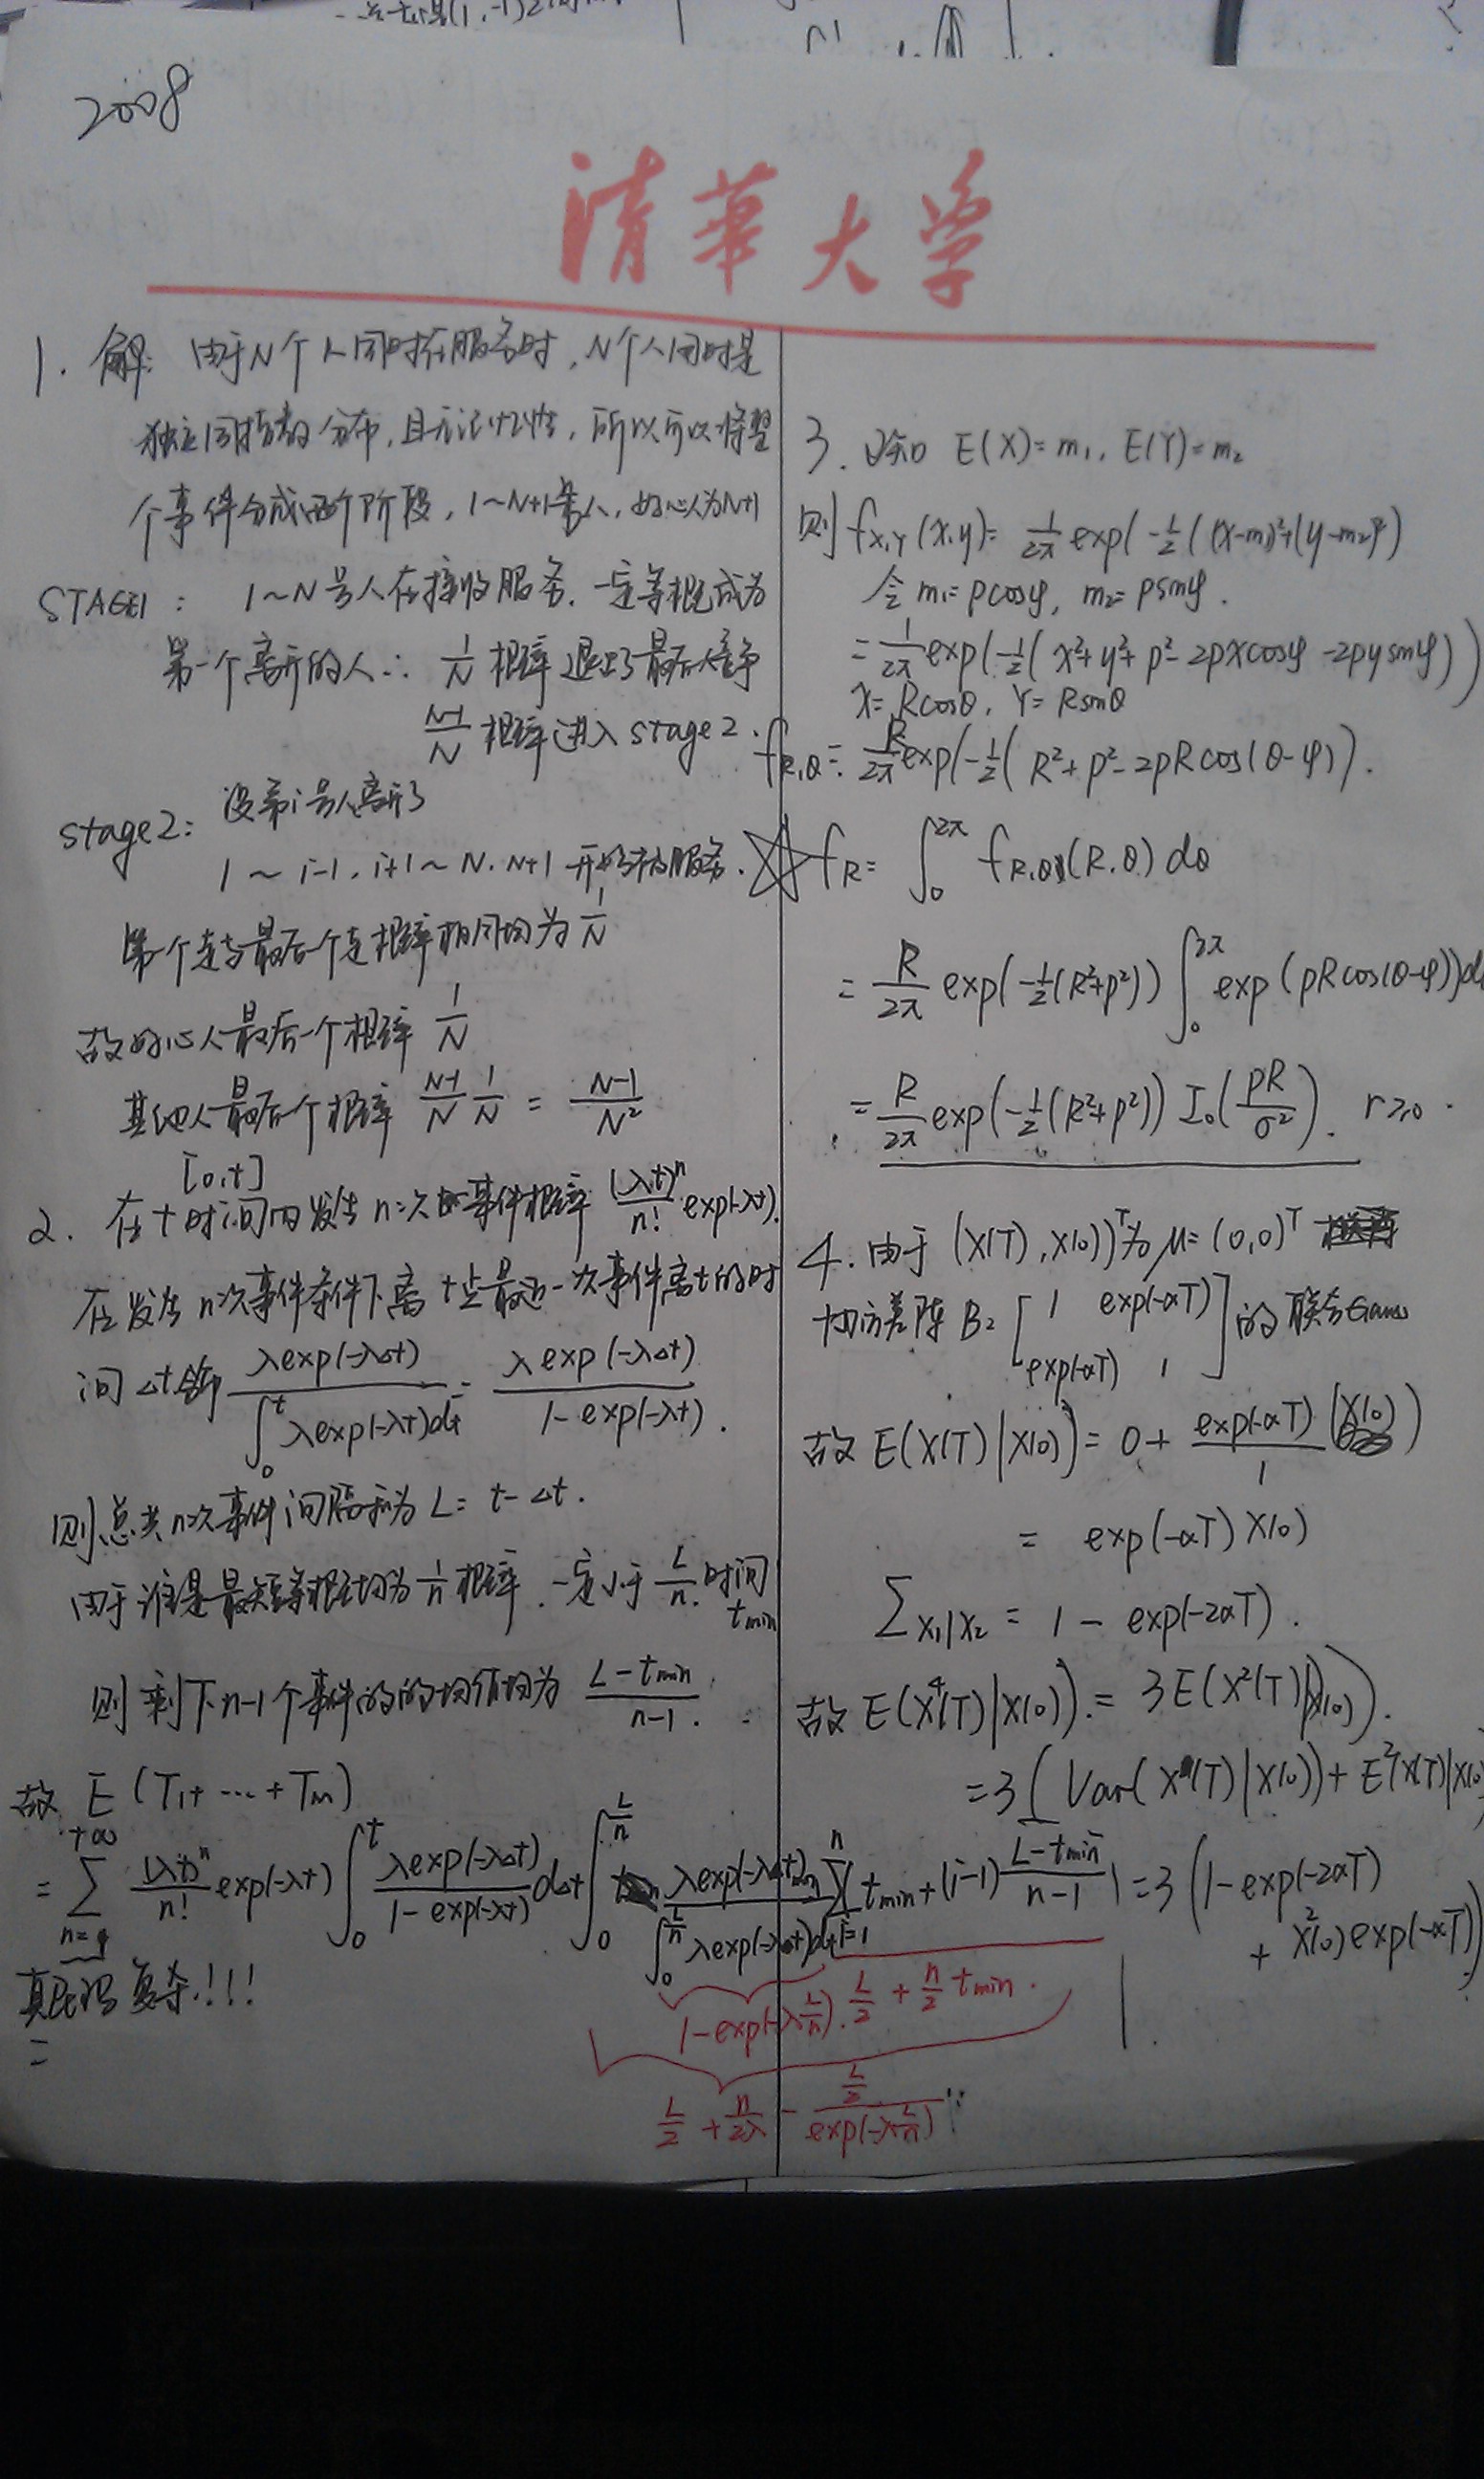 2008
清華大学
1. 解: 由于N个人同时在服务时, N个人同时是
独立同指数分布, 且无记忆性, 所以可以将整
个事件分成两个阶段, 1~N+1号人, 好心人为N+1
STAGE1: 1~N号人在接收服务. 一定等概成为
第一个离开的人∴ 1/N 概率退出了最后竞争
(N-1)/N 概率进入 stage 2.
stage2: 设第i号人离开了
1 ~ i-1, i+1 ~ N, N+1 开始接服务.
第一个走与最后一个走概率相同均为 1/N
故好心人最后一个概率 1/N
其他人最后一个概率 (N-1)/N 1/N = (N-1)/N²
[0,t]
2. 在 t 时间内发生 n 次事件概率 (λt)^n/n! exp(-λt).
在发生n次事件条件下离 t 点最近一次事件离t的时
间 Δt λexp(-λΔt)/∫₀^t λexp(-λt)dt = λexp(-λΔt)/(1-exp(-λt)).
则总共n次事件间隔和为 L = t-Δt.
由于谁是最短等概均为 1/n 概率. 一定小于 L/n. 时间
t_min
则剩下n-1个事件的的均值均为 (L-t_min)/(n-1).
故 E(T₁+…+Tₙ)
= Σ_{n=1}^{+∞} (λt)^n/n! exp(-λt) ∫₀^t λexp(-λΔt)/(1-exp(-λt)) dΔt ∫₀^{L/n} λexp(-λΔt_min)/∫₀^{L/n} λexp(-λΔt)dt Σ_{i=1}^n t_min+(i-1)(L-t_min)/(n-1)
1-exp(-λL/n). L/2 + n/2 t_min.
L/2 + n/2λ - (L/2)/exp(-λL/n)
复杂!!!
=
3. 已知 E(X)=m₁, E(Y)=m₂
则 f_{X,Y}(x,y)= 1/2π exp(-1/2((x-m₁)²+(y-m₂)²)
令 m₁=ρcosφ, m₂=ρsinφ.
= 1/2π exp(-1/2(x²+y²+ρ²-2ρxcosφ-2ρysinφ))
X=Rcosθ, Y=Rsinθ
f_{R,θ}= R/2π exp(-1/2(R²+ρ²-2ρRcos(θ-φ)).
☆ f_R= ∫₀^{2π} f_{R,θ}(R,θ)dθ
= R/2π exp(-1/2(R²+ρ²)) ∫₀^{2π} exp(ρRcos(θ-φ))d
= R/2π exp(-1/2(R²+ρ²)) I₀(ρR/σ²). r≥0.
4. 由于 (X(T), X(0))^T为 μ=(0,0)^T
协方差阵 B= [1 exp(-αT) exp(-αT) 1] 的联合Gauss
故 E(X(T)|X(0))= 0+ exp(-αT)/1 (X(0))
= exp(-αT)X(0)
Σ_{X₁|X₂} = 1-exp(-2αT).
故 E(X⁴(T)|X(0)).= 3E(X²(T)|X(0)).
=3(Var(X(T)|X(0))+E²(X(T)|X(0)
=3(1-exp(-2αT)
+ X²(0)exp(-αT))